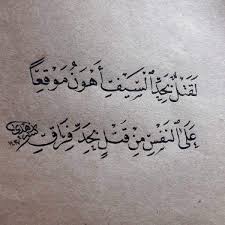 لَقَتْلٌ بِحَدِّ السَّيْفِ أَهْوَنُ مَوْقِعًا
عَلَى النَّفْسِ مِنْ قَتْلٍ بِحَدِّ فِرَاقِ